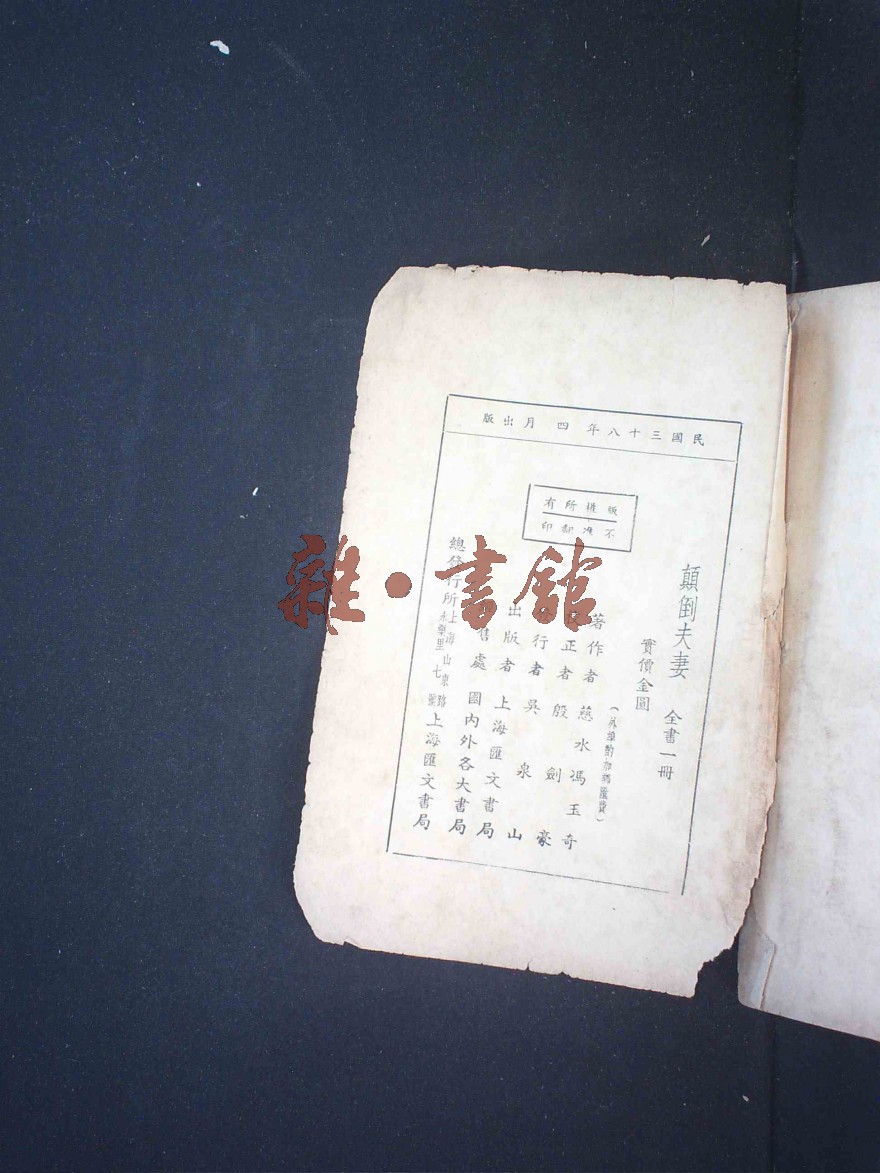 民國三十八年四月出版
版權所有
不准翻印
顛倒夫妻 全書一冊
實價金圓
(外埠酌加郵匯費)
著作者 慈水馮玉奇
正者 殷劍豪
行者 吳泉山
出版者 上海匯文書局
售處 國內外各大書局
總發行所 上海山東路永樂里七號 上海匯文書局
雜·書館